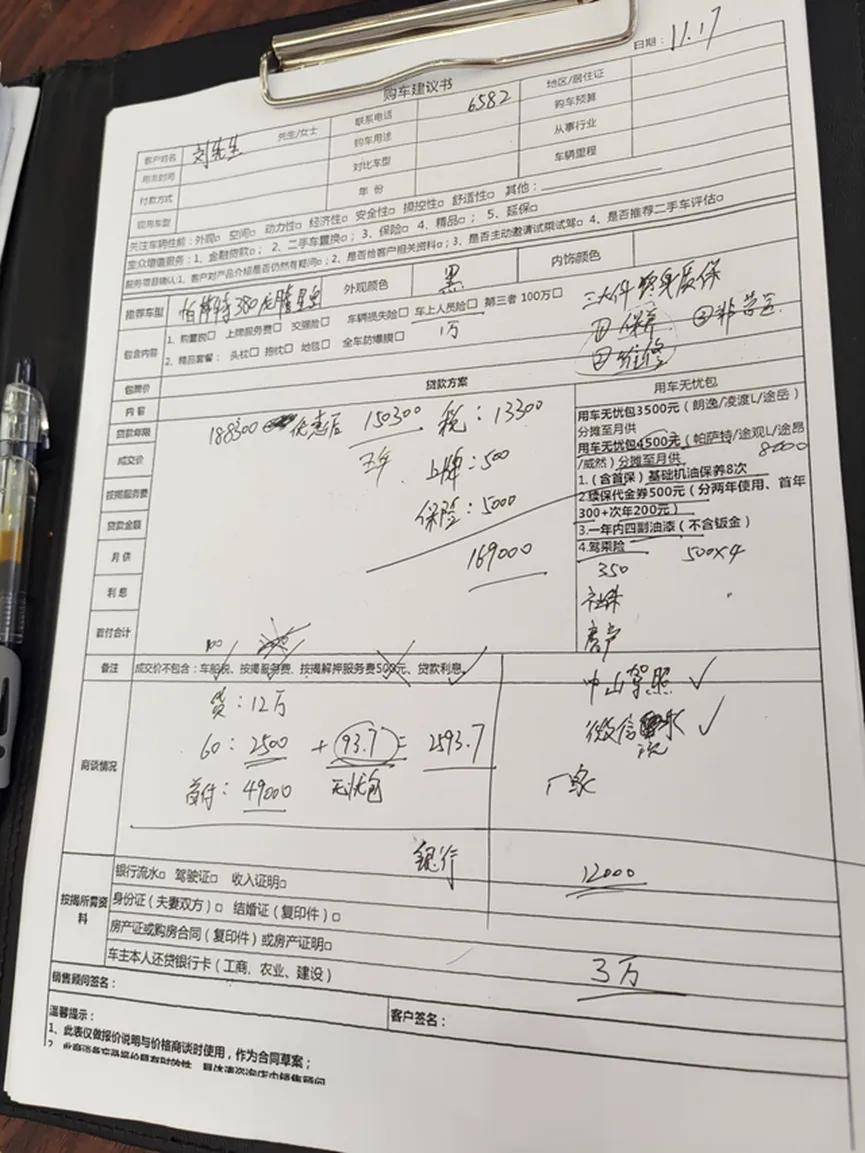 购车建议书
日期：11.17
客户姓名 刘先生 先生/女士 联系电话 6582 地区/居住证
用车时间 购车用途 购车预算
付款方式 对比车型 从事行业
现用车型 年 份 车辆里程
关注车辆性前：外观□ 空间□ 动力性□ 经济性□ 安全性□ 操控性□ 舒适性□ 其他：
1、金融贷款□； 2、二手车置换□； 3、保险□ 4、精品□； 5、延保□
服务项目确认：1、客户对产品介绍是否仍然有疑问□；2、是否给客户相关资料□；3、是否主动邀请试乘试驾□ 4、是否推荐二手车评估□
推荐车型 帕萨特380龙腾星空 外观颜色 黑 内饰颜色
三大件终身质保
包含内容 1、购置税□ 上牌服务费□ 交强险□ 车辆损失险□ 车上人员险□ 第三者 100万□
1万
① 保养 ③非营运
2、精品套餐： 头枕□ 抱枕□ 地毯□ 全车防爆膜□
② 维修
包牌价
内 容 贷款方案 用车无忧包
贷款年限
成交价
按揭服务费
贷款金额
月 供
利 息
首付合计
188300 优惠后 150300 税：13300
五年 上牌：500
保险：5000
169000
用车无忧包3500元（朗逸/凌渡L/途岳）
分摊至月供
用车无忧包4500元（帕萨特/途观L/途昂
/威然）分摊至月供 8000
1.（含首保）基础机油保养8次
2.续保代金券500元（分两年使用、首年
300+次年200元）
3.一年内四副油漆（不含钣金）
4.驾乘险 500×4
350
社保
房产
备注 成交价不包含：车船税、按揭服务费、按揭解押服务费500元、贷款利息。
商谈情况
贷：12万
60：2500 + 93.7 = 2593.7
首付：49000 无忧包
中山驾照 ✓
微信 流水 ✓
厂家
银行 12000
按揭所需资料
银行流水□ 驾驶证□ 收入证明□
身份证（夫妻双方）□ 结婚证（复印件）□
房产证或购房合同（复印件）或房产证明□
车主本人还贷银行卡（工商、农业、建设）
3万
销售顾问签名： 客户签名：
温馨提示：
1、此表仅做报价说明与价格商谈时使用，作为合同草案；